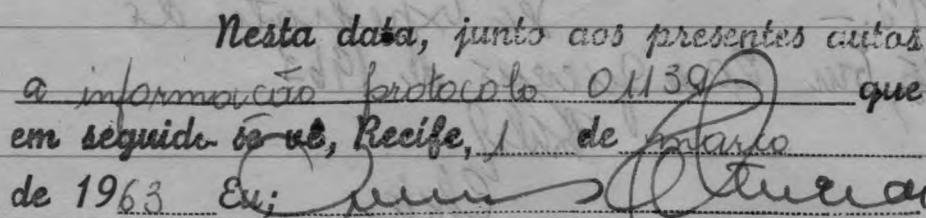 Nesta data, junto aos presentes autos
a informação protocolo 01139 que
em seguida se vê, Recife, 1 de março
de 1963 Eu;